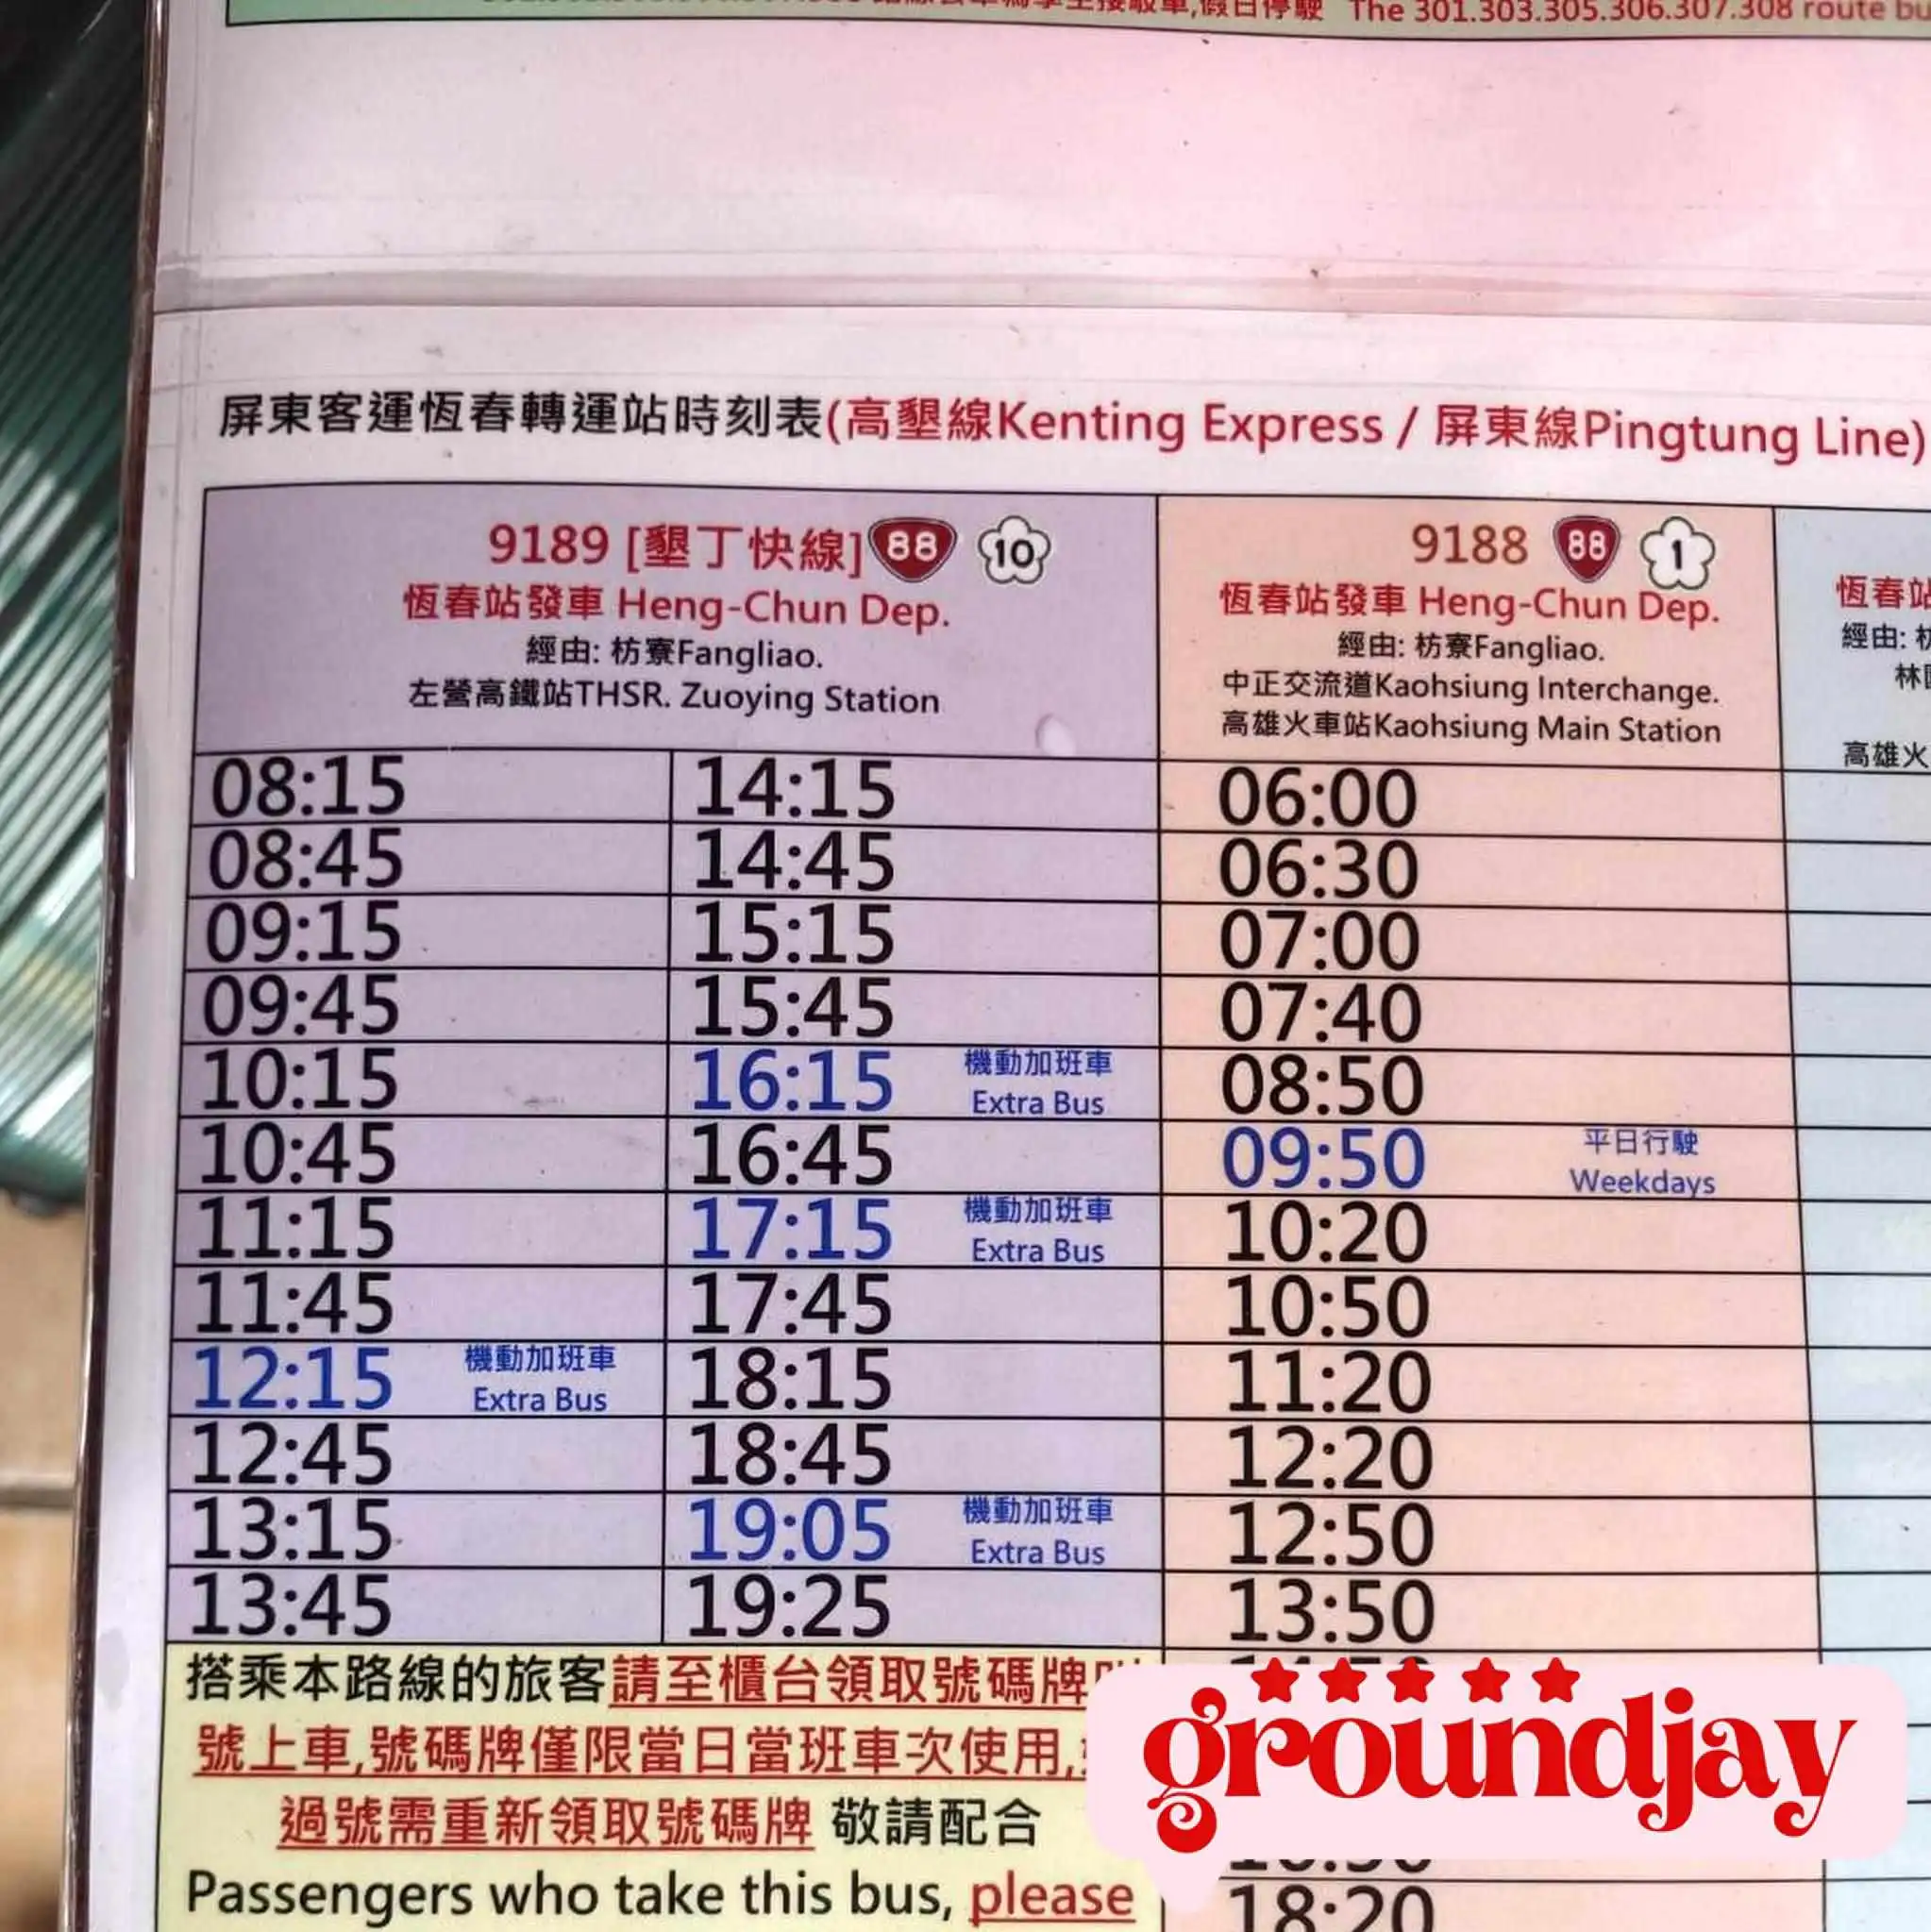 The 301.303.305.306.307.308 route bu
屏東客運恆春轉運站時刻表(高墾線Kenting Express / 屏東線Pingtung Line)
9189 [墾丁快線] 88 10
恆春站發車 Heng-Chun Dep.
經由: 枋寮Fangliao.
左營高鐵站THSR. Zuoying Station
08:15 14:15
08:45 14:45
09:15 15:15
09:45 15:45
10:15 16:15 機動加班車 Extra Bus
10:45 16:45
11:15 17:15 機動加班車 Extra Bus
11:45 17:45
12:15 機動加班車 Extra Bus 18:15
12:45 18:45
13:15 19:05 機動加班車 Extra Bus
13:45 19:25
搭乘本路線的旅客請至櫃台領取號碼牌
號上車,號碼牌僅限當日當班車次使用,
過號需重新領取號碼牌 敬請配合
Passengers who take this bus, please
9188 88 1
恆春站發車 Heng-Chun Dep.
經由: 枋寮Fangliao.
中正交流道Kaohsiung Interchange.
高雄火車站Kaohsiung Main Station
06:00
06:30
07:00
07:40
08:50
09:50 平日行駛 Weekdays
10:20
10:50
11:20
12:20
12:50
13:50
18:20
恆春站
經由: 枋
林
高雄火
groundjay